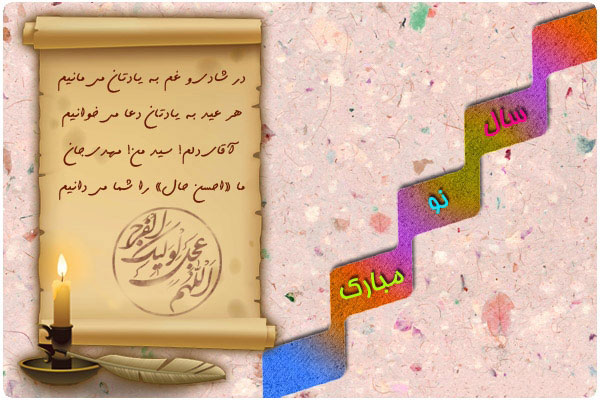 در شادی و غم به یادتان می‌مانیم
هر عید به یادتان دعا می‌خوانیم
آقای دلم! سید من! مهدی‌جان
ما «احسن حال» را شما می‌دانیم
اللهم عجل لولیک الفرج
سال
نو
مبارک